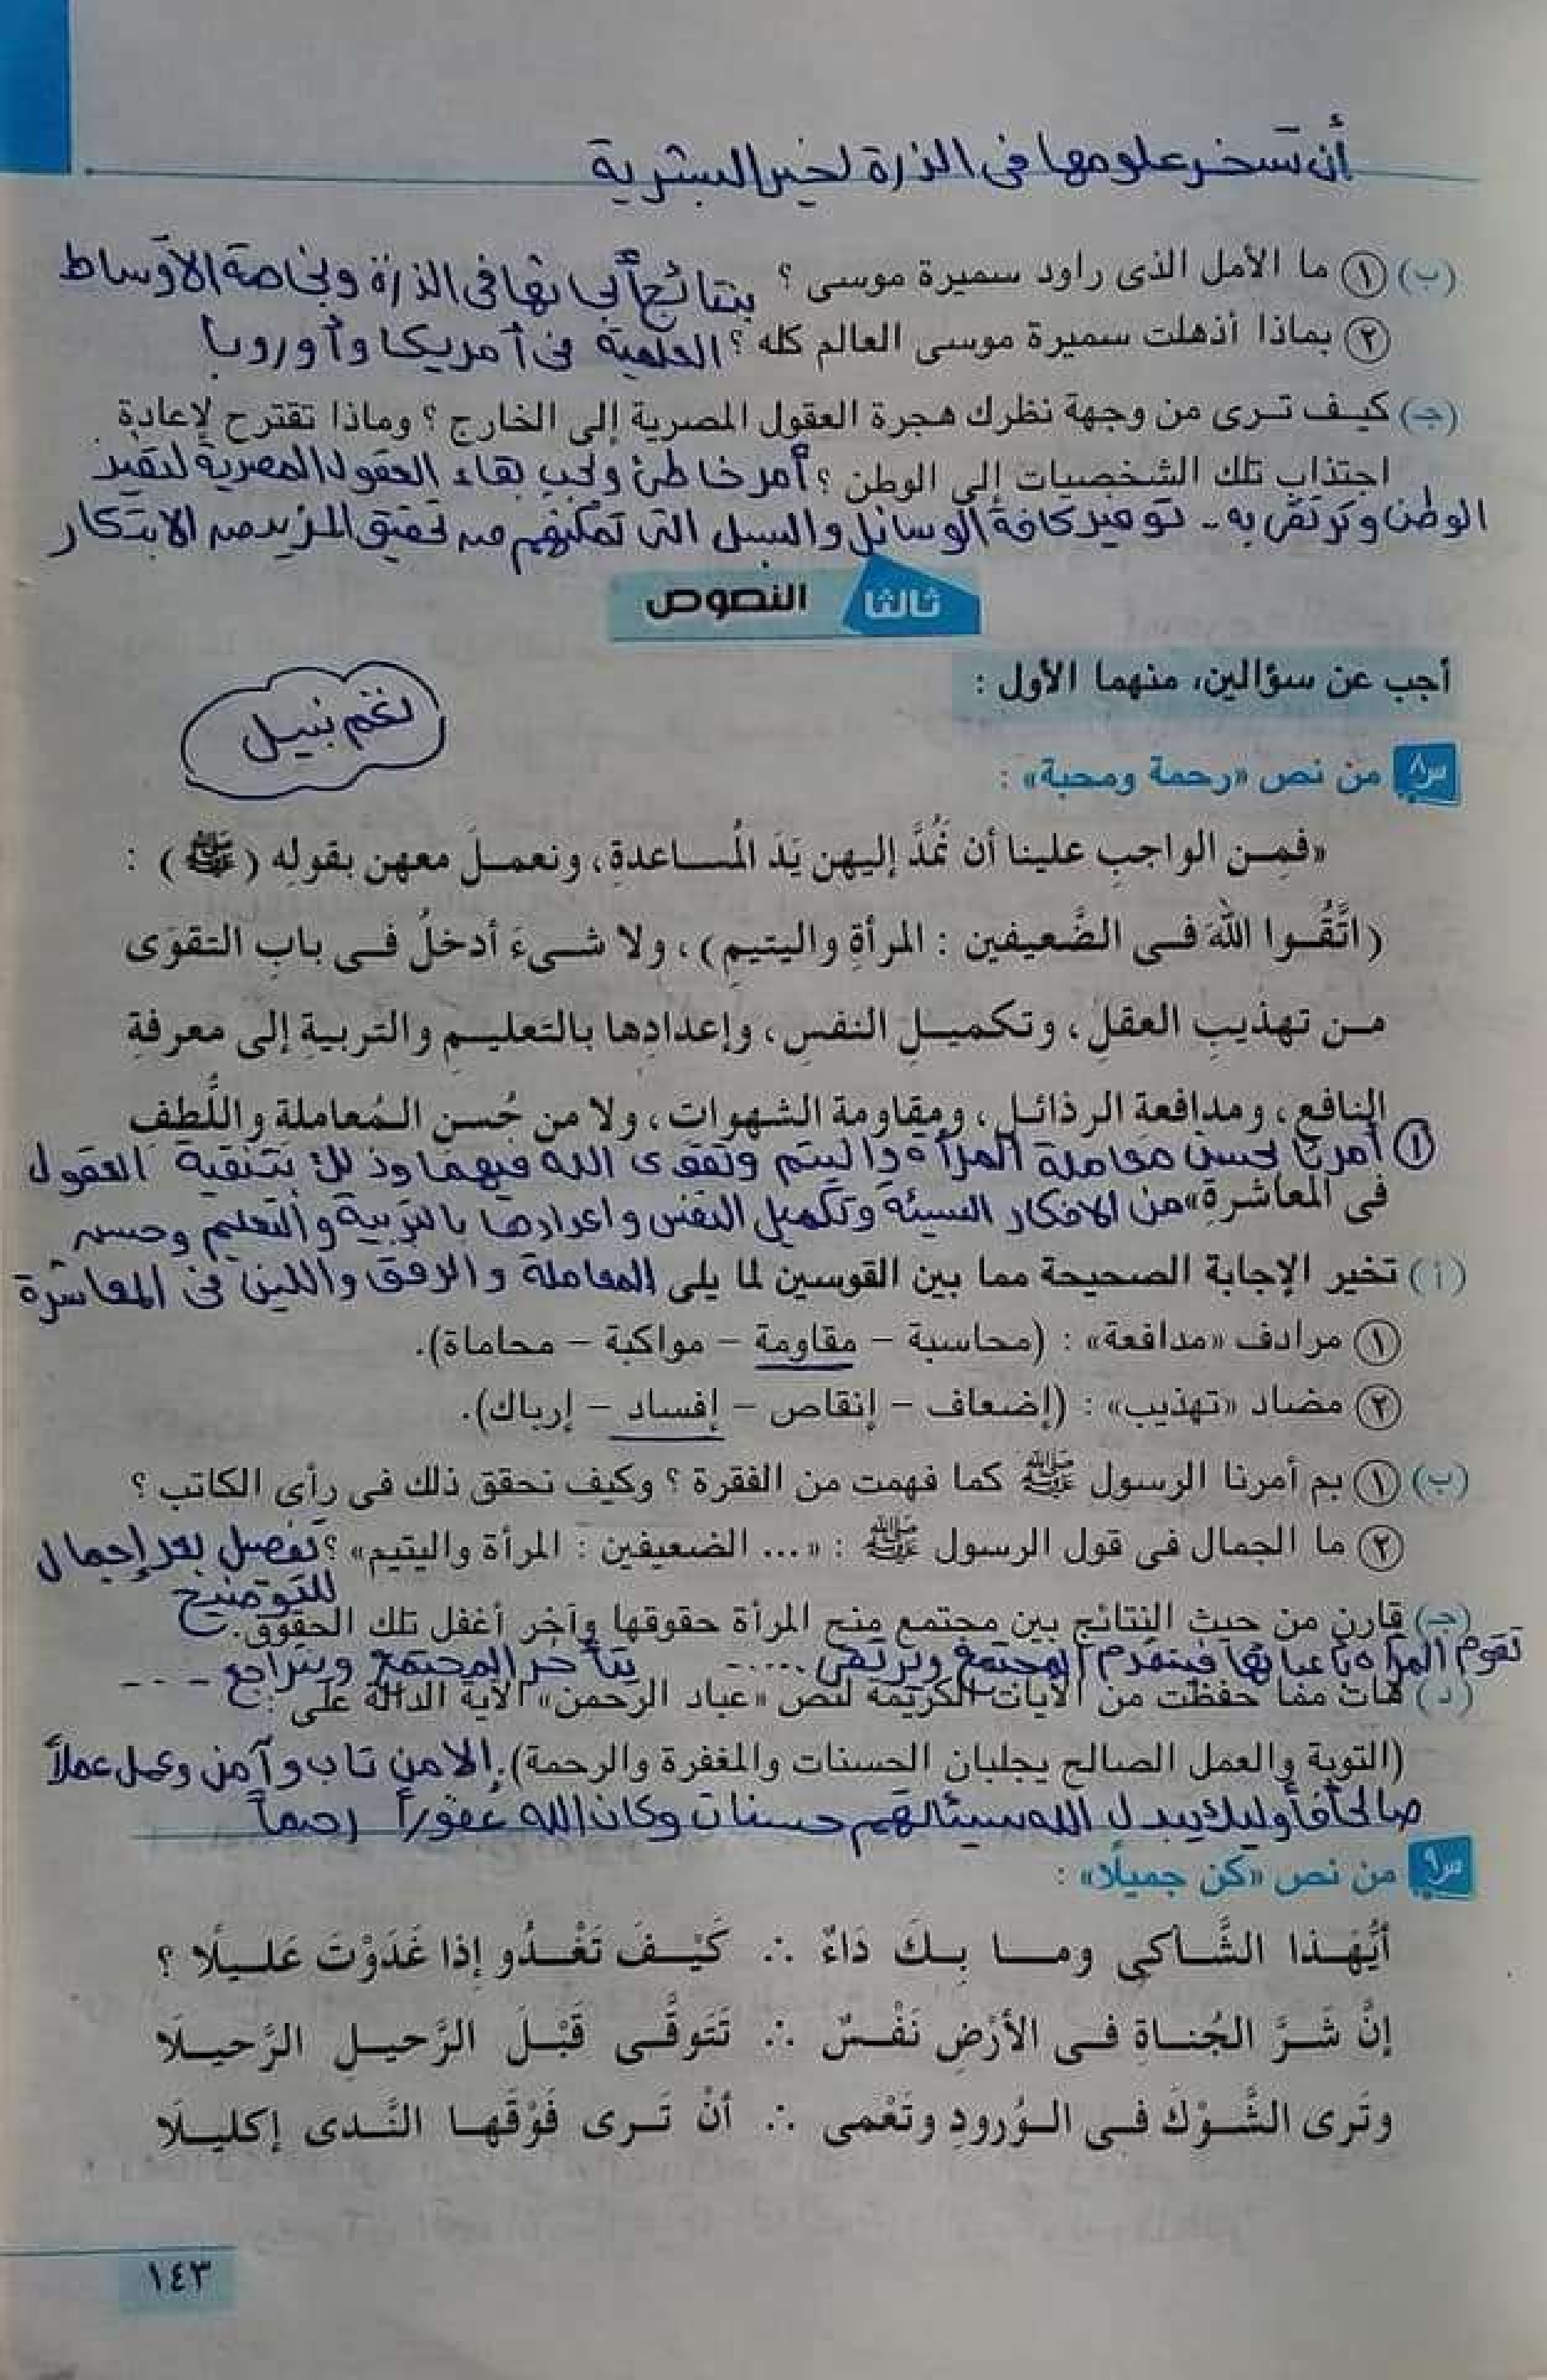 أن تسخر علومها فى الذرة لخير البشرية
(ب) ١ ما الأمل الذى راود سميرة موسى ؟ بنتائج أبحاثها فى الذرة وبخاصة الأوساط
٢ بماذا أذهلت سميرة موسى العالم كله ؟ العلمية فى أمريكا وأوروبا
(جـ) كيف ترى من وجهة نظرك هجرة العقول المصرية إلى الخارج ؟ وماذا تقترح لإعادة
اجتذاب تلك الشخصيات إلى الوطن ؟ أمر خاطئ ويجب بقاء العقول المصرية لتفيد
الوطن وترتقى به .. توفير كافة الوسائل والسبل التى تمكنهم من تحقيق المزيد من الابتكار
ثالثا النصوص
أجب عن سؤالين، منهما الأول :
نغم نبيل
س٨ من نص «رحمة ومحبة» :
«فمِـن الواجبِ علينا أن نَمُدَّ إليهن يَدَ المُساعدةِ، ونعملَ معهن بقولِه (ﷺ) :
(اتَّقُوا اللهَ فى الضَّعيفين : المرأةِ واليتيمِ)، ولا شىءَ أدخلُ فى بابِ التقوَى
من تهذيبِ العقلِ، وتكميلِ النفسِ، وإعدادِها بالتعليمِ والتربيةِ إلى معرفةِ
النافعِ، ومدافعة الرذائل، ومقاومة الشهوات، ولا من حُسن المُعاملة واللُّطفِ
١ أمرنا بحسن معاملة المرأة واليتم وتقوى الله فيهما وذلك بتنقية العقول
فى المعاشرةِ» من الافكار السيئة وتكميل النفس واعدادها بالتربية والتعليم وحسن
(أ) تخير الإجابة الصحيحة مما بين القوسين لما يلى المعاملة والرفق واللين فى المعاشرة
١ مرادف «مدافعة» : (محاسبة – مقاومة – مواكبة – محاماة).
٢ مضاد «تهذيب» : (إضعاف – إنقاص – إفساد – إرباك).
(ب) ١ بم أمرنا الرسول ﷺ كما فهمت من الفقرة ؟ وكيف نحقق ذلك فى رأى الكاتب ؟
٢ ما الجمال فى قول الرسول ﷺ : «... الضعيفين : المرأة واليتيم» ؟ تفصيل بعد إجمال
للتوضيح
(جـ) قارن من حيث النتائج بين مجتمع منح المرأة حقوقها وآخر أغفل تلك الحقوق.
تقوم المرأة بأعبائها فيتقدم المجتمع ويرتقى ..... يتأخر المجتمع ويتراجع ....
(د) هات مما حفظت من الآيات الكريمة لنص «عباد الرحمن» الآية الدالة على :
(التوبة والعمل الصالح يجلبان الحسنات والمغفرة والرحمة). إلا من تاب وآمن وعمل عملاً
صالحاً فأوليك يبدل الله سيئاتهم حسنات وكان الله غفوراً رحيماً
س٩ من نص «كن جميلًا» :
أيُّهَـذا الشَّاكى وما بِكَ دَاءٌ ∴ كَيْفَ تَغْدُو إذا غَدَوْتَ عَليلًا ؟
إنَّ شَرَّ الجُناةِ فى الأرْضِ نَفْسٌ ∴ تَتَوقَّى قَبْلَ الرَّحيلِ الرَّحيلَا
وتَرى الشَّوْكَ فى الوُرودِ وتَعْمى ∴ أنْ تَرى فَوْقَها النَّدى إكليلَا
١٤٣